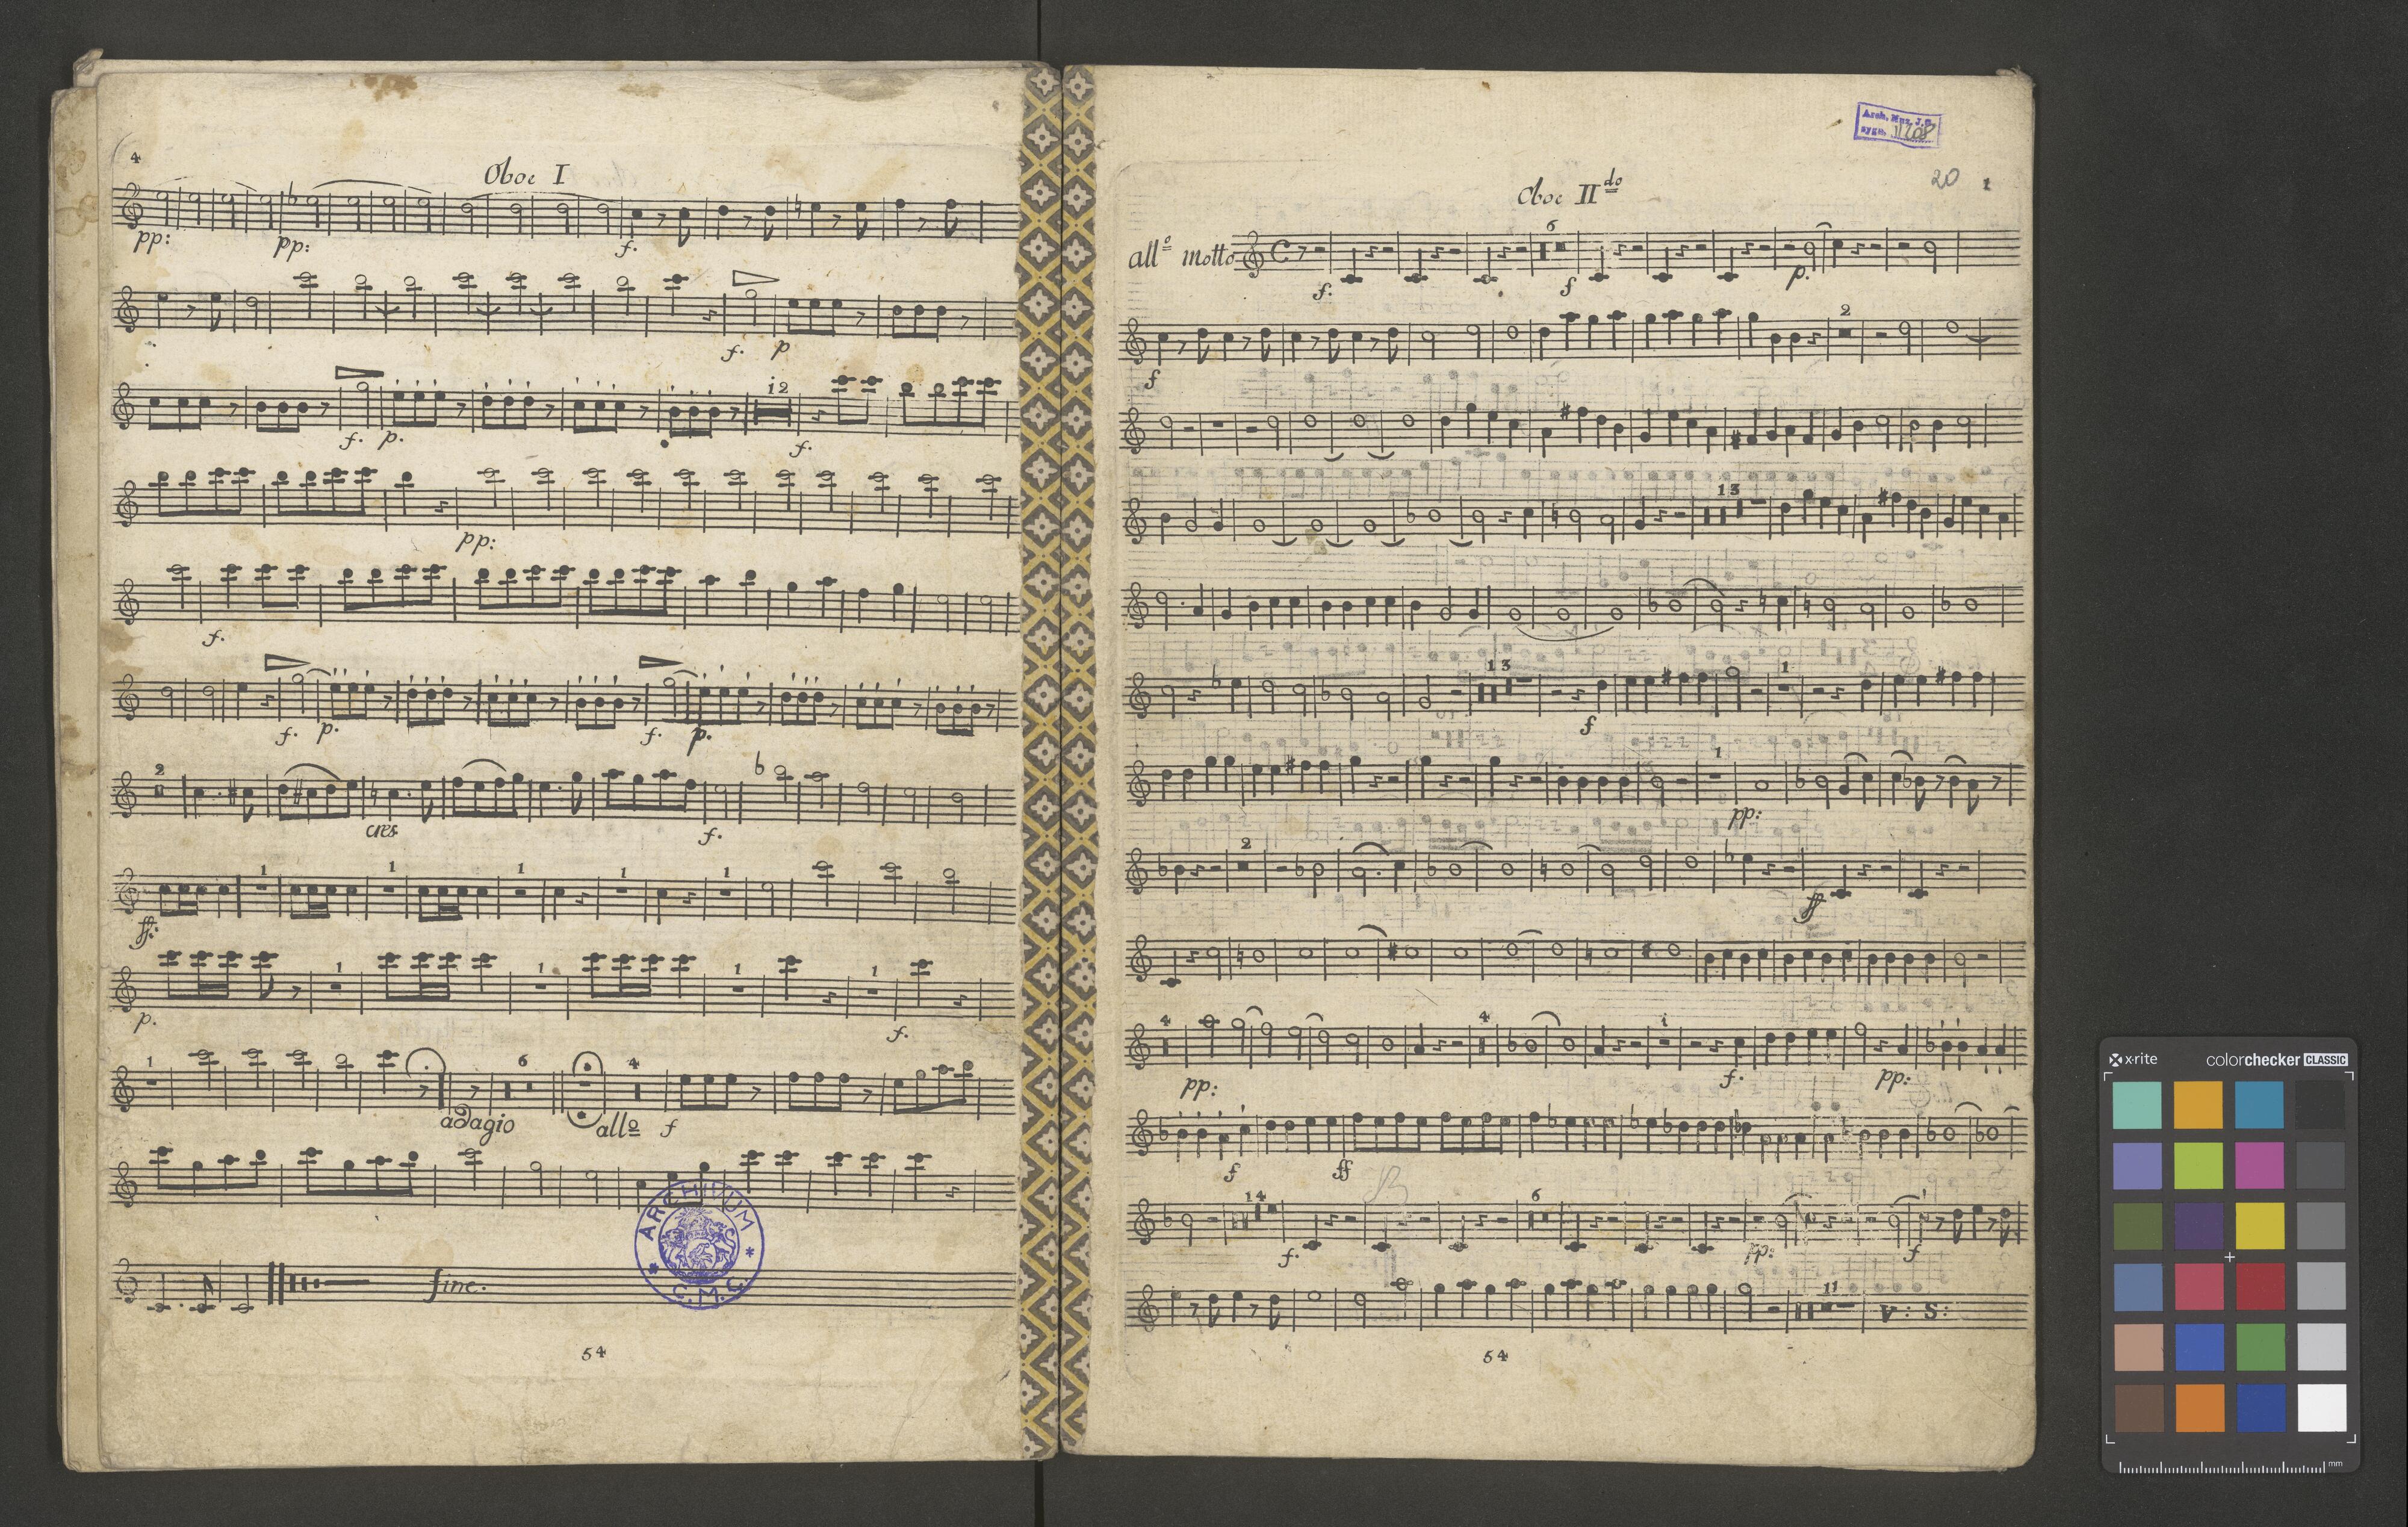 4
Oboe I
pp: pp: f.
f. p
i2
f. p. f.
pp:
f.
f. p. f. p.
2
cres f.
1 1 1 1 1
ff:
1 1 1 1
p. f.
1 6 4
adagio allo f
fine.
ARCHIVUM * C.M.C. *
54
Arch. Muz. J.G.
sygn.
20 1
Oboe II do
allo molto
6
f. f p.
2
f
13
13 1
f
1
pp:
2
ff
4 4 i
pp: f. pp:
f ff
14 6
f. pp: f
11
V: S:
54
x-rite colorchecker CLASSIC
mm